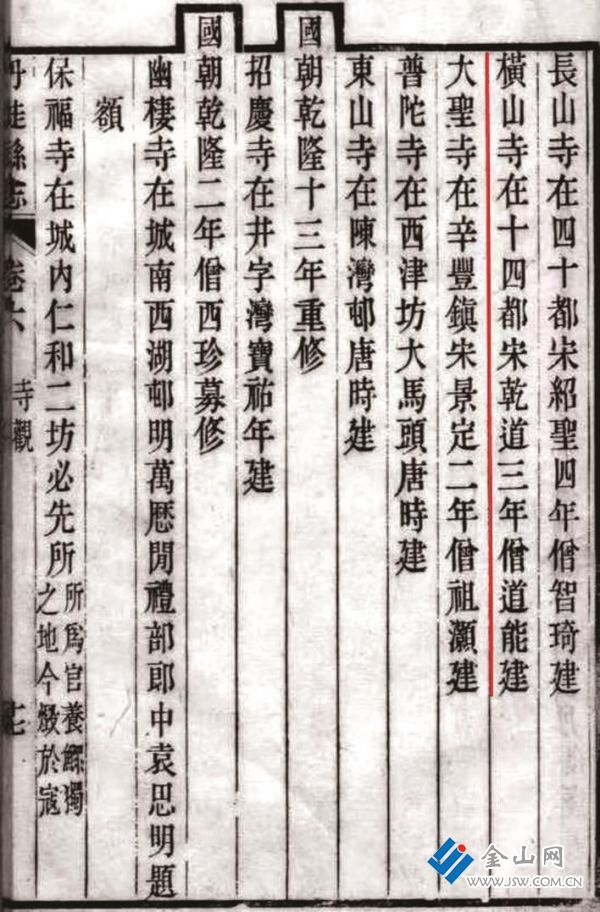 長山寺在四十都宋紹聖四年僧智琦建
橫山寺在十四都宋乾道三年僧道能建
大聖寺在辛豐鎮宋景定二年僧祖灝建
普陀寺在西津坊大馬頭唐時建
東山寺在陳灣邨唐時建
國朝乾隆十三年重修
招慶寺在井字灣寶祐年建
國朝乾隆二年僧西珍募修
幽棲寺在城南西湖邨明萬厯閒禮部郎中袁思明題
額
保福寺在城內仁和二坊必先所
所爲官養鰥獨
之地今燬於寇
丹徒縣志
卷六
寺觀
金山网
WWW.JSW.COM.CN